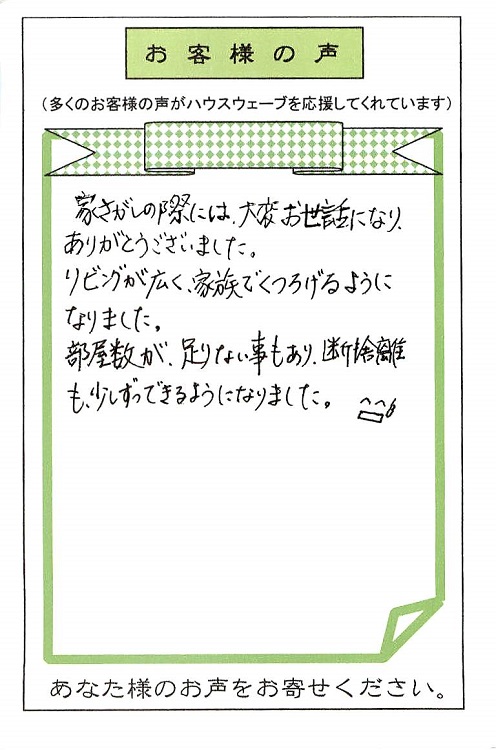 お客様の声
（多くのお客様の声がハウスウェーブを応援してくれています）
家さがしの際には、大変お世話になり、
ありがとうございました。
リビングが広く、家族でくつろげるように
なりました。
部屋数が、足りない事もあり、断捨離
も、少しずつできるようになりました。
あなた様のお声をお寄せください。